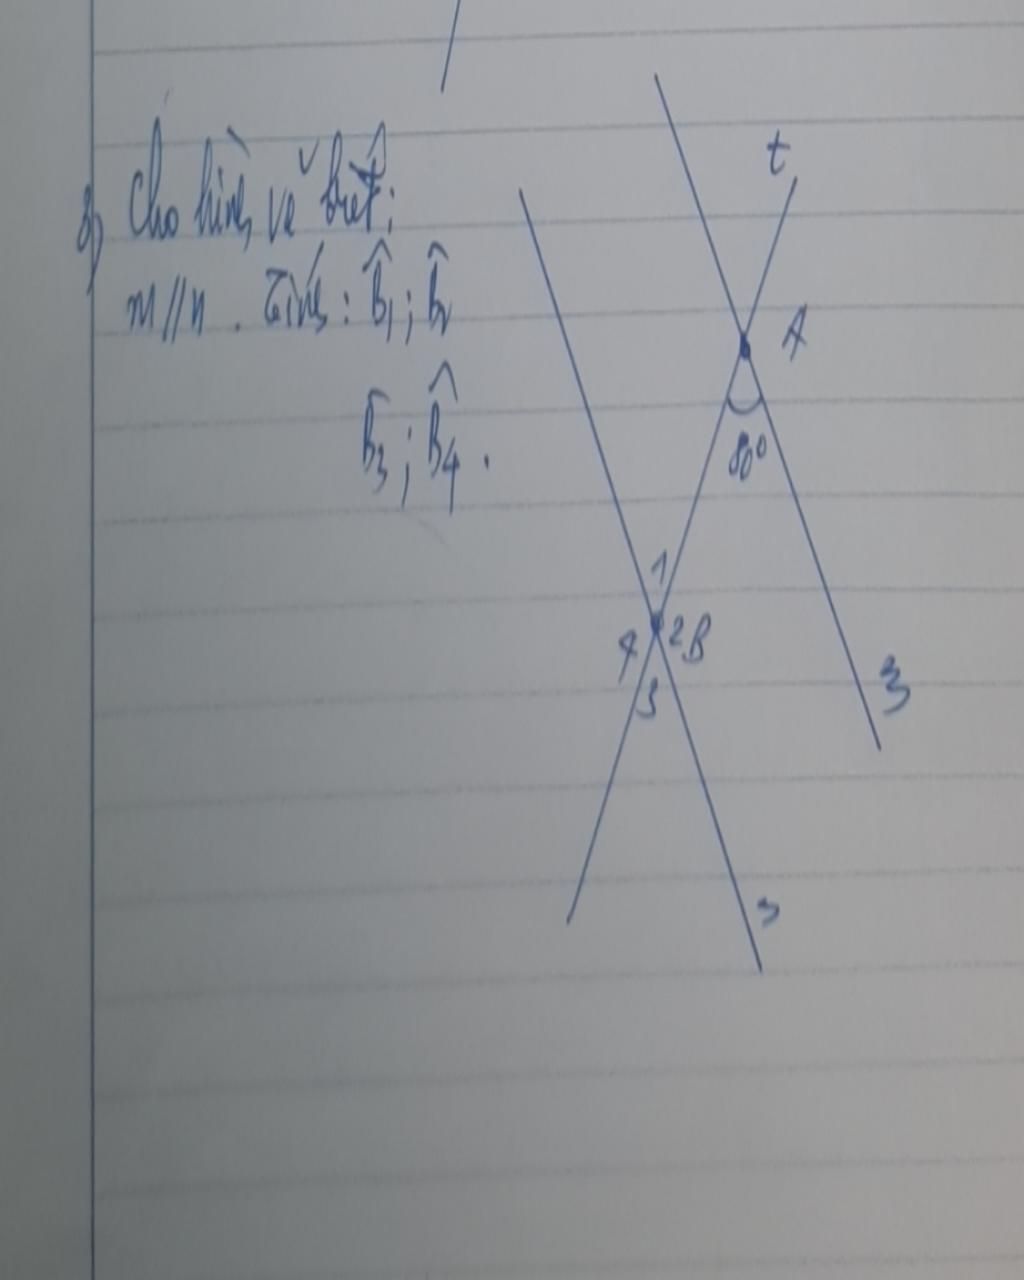 8) Cho hình vẽ biết:
m//n. Tính: B̂1; B̂2
B̂3; B̂4.
t
A
80°
1
2 B
4
3
m
n